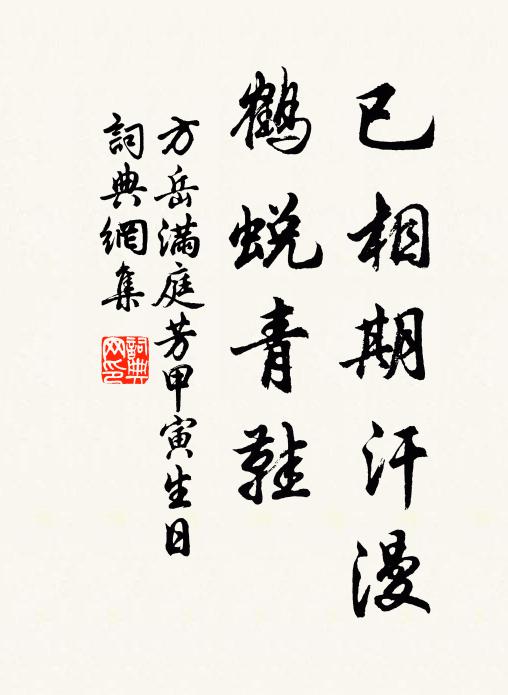 已相期汗漫
鶴蜕青鞋
方岳满庭芳甲寅生日
詞典網集
詞典網印